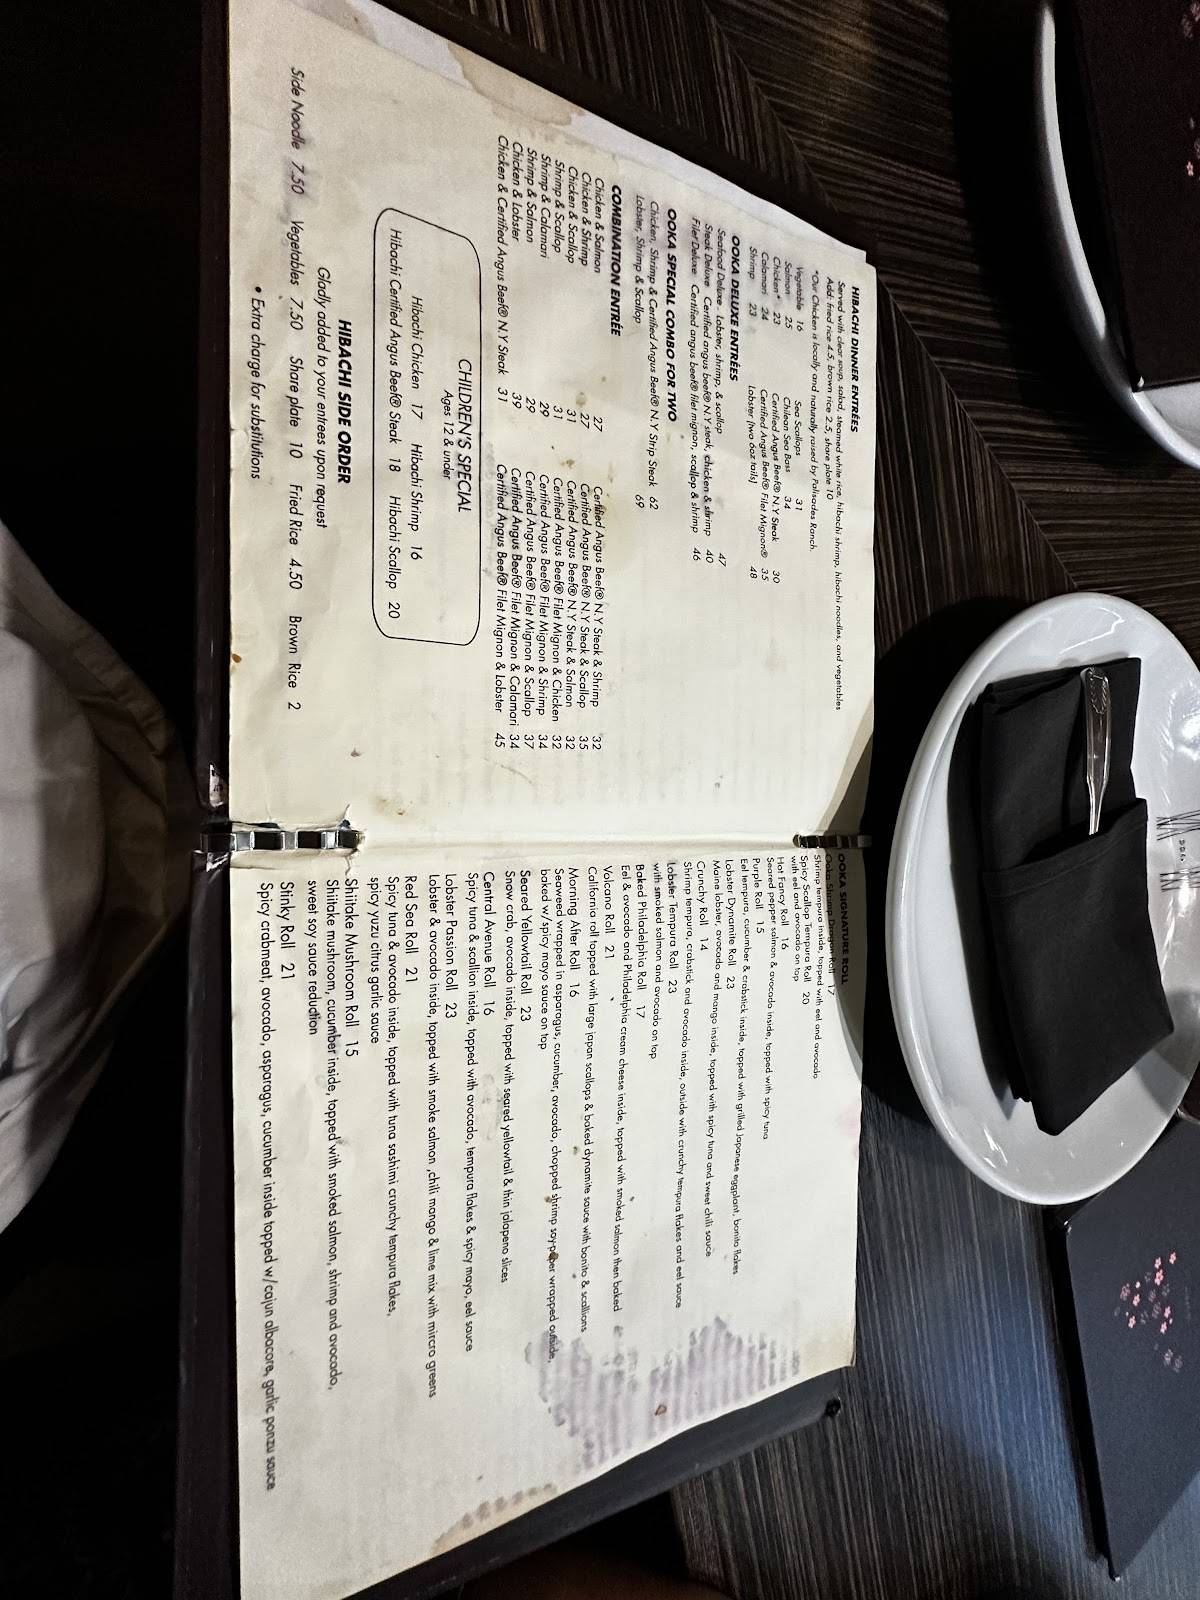 HIBACHI DINNER ENTRÉES
Served with clear soup, salad, steamed white rice, hibachi shrimp, hibachi noodles, and vegetables
Add: fried rice 4.5, brown rice 2.5, share plate 10
*Our Chicken is locally and naturally raised by Palisades Ranch.
Vegetable 16
Salmon 25
Chicken* 23
Calamari 24
Shrimp 23
Sea Scallops 31
Chilean Sea Bass 34
Certified Angus Beef® N.Y Steak 30
Certified Angus Beef® Filet Mignon® 35
Lobster (two 6oz tails) 48
OOKA DELUXE ENTRÉES
Seafood Deluxe - Lobster, shrimp, & scallop 47
Steak Deluxe Certified angus beef® N.Y steak, chicken & shrimp 40
Filet Deluxe Certified angus beef® filet mignon, scallop & shrimp 46
OOKA SPECIAL COMBO FOR TWO
Chicken, Shrimp & Certified Angus Beef® N.Y Strip Steak 62
Lobster, Shrimp & Scallop 69
COMBINATION ENTRÉE
Chicken & Salmon 27
Chicken & Shrimp 27
Chicken & Scallop 31
Shrimp & Scallop 31
Shrimp & Calamari 29
Shrimp & Salmon 29
Chicken & Lobster 39
Chicken & Certified Angus Beef® N.Y Steak 31
Certified Angus Beef® N.Y Steak & Shrimp 32
Certified Angus Beef® N.Y Steak & Scallop 35
Certified Angus Beef® N.Y Steak & Salmon 32
Certified Angus Beef® Filet Mignon & Chicken 32
Certified Angus Beef® Filet Mignon & Shrimp 34
Certified Angus Beef® Filet Mignon & Scallop 37
Certified Angus Beef® Filet Mignon & Calamari 34
Certified Angus Beef® Filet Mignon & Lobster 45
CHILDREN'S SPECIAL
Ages 12 & under
Hibachi Chicken 17 Hibachi Shrimp 16
Hibachi Certified Angus Beef® Steak 18 Hibachi Scallop 20
HIBACHI SIDE ORDER
Gladly added to your entrees upon request
Side Noodle 7.50 Vegetables 7.50 Share plate 10 Fried Rice 4.50 Brown Rice 2
• Extra charge for substitutions
OOKA SIGNATURE ROLL
Ooka Shrimp Dragon Roll 17
Shrimp tempura inside, topped with eel and avocado
Spicy Scallop Tempura Roll 20
with eel and avocado on top
Hot Fancy Roll 16
Seared pepper salmon & avocado inside, topped with spicy tuna
Purple Roll 15
Eel tempura, cucumber & crabstick inside, topped with grilled Japanese eggplant, bonito flakes
Lobster Dynamite Roll 23
Maine lobster, avocado and mango inside, topped with spicy tuna and sweet chili sauce
Crunchy Roll 14
Shrimp tempura, crabstick and avocado inside, outside with crunchy tempura flakes and eel sauce
Lobster Tempura Roll 23
with smoked salmon and avocado on top
Baked Philadelphia Roll 17
Eel & avocado and Philadelphia cream cheese inside, topped with smoked salmon then baked
Volcano Roll 21
California roll topped with large japan scallops & baked dynamite sauce with bonito & scallions
Morning After Roll 16
Seaweed wrapped in asparagus, cucumber, avocado, chopped shrimp soy-paper wrapped outside,
baked w/spicy mayo sauce on top
Seared Yellowtail Roll 23
Snow crab, avocado inside, topped with seared yellowtail & thin jalapeno slices
Central Avenue Roll 16
Spicy tuna & scallion inside, topped with avocado, tempura flakes & spicy mayo, eel sauce
Lobster Passion Roll 23
Lobster & avocado inside, topped with smoke salmon ,chili mango & lime mix with mircro greens
Red Sea Roll 21
Spicy tuna & avocado inside, topped with tuna sashimi crunchy tempura flakes,
spicy yuzu citrus garlic sauce
Shiitake Mushroom Roll 15
Shiitake mushroom, cucumber inside, topped with smoked salmon, shrimp and avocado,
sweet soy sauce reduction
Stinky Roll 21
Spicy crabmeat, avocado, asparagus, cucumber inside topped w/cajun albacore, garlic ponzu sauce